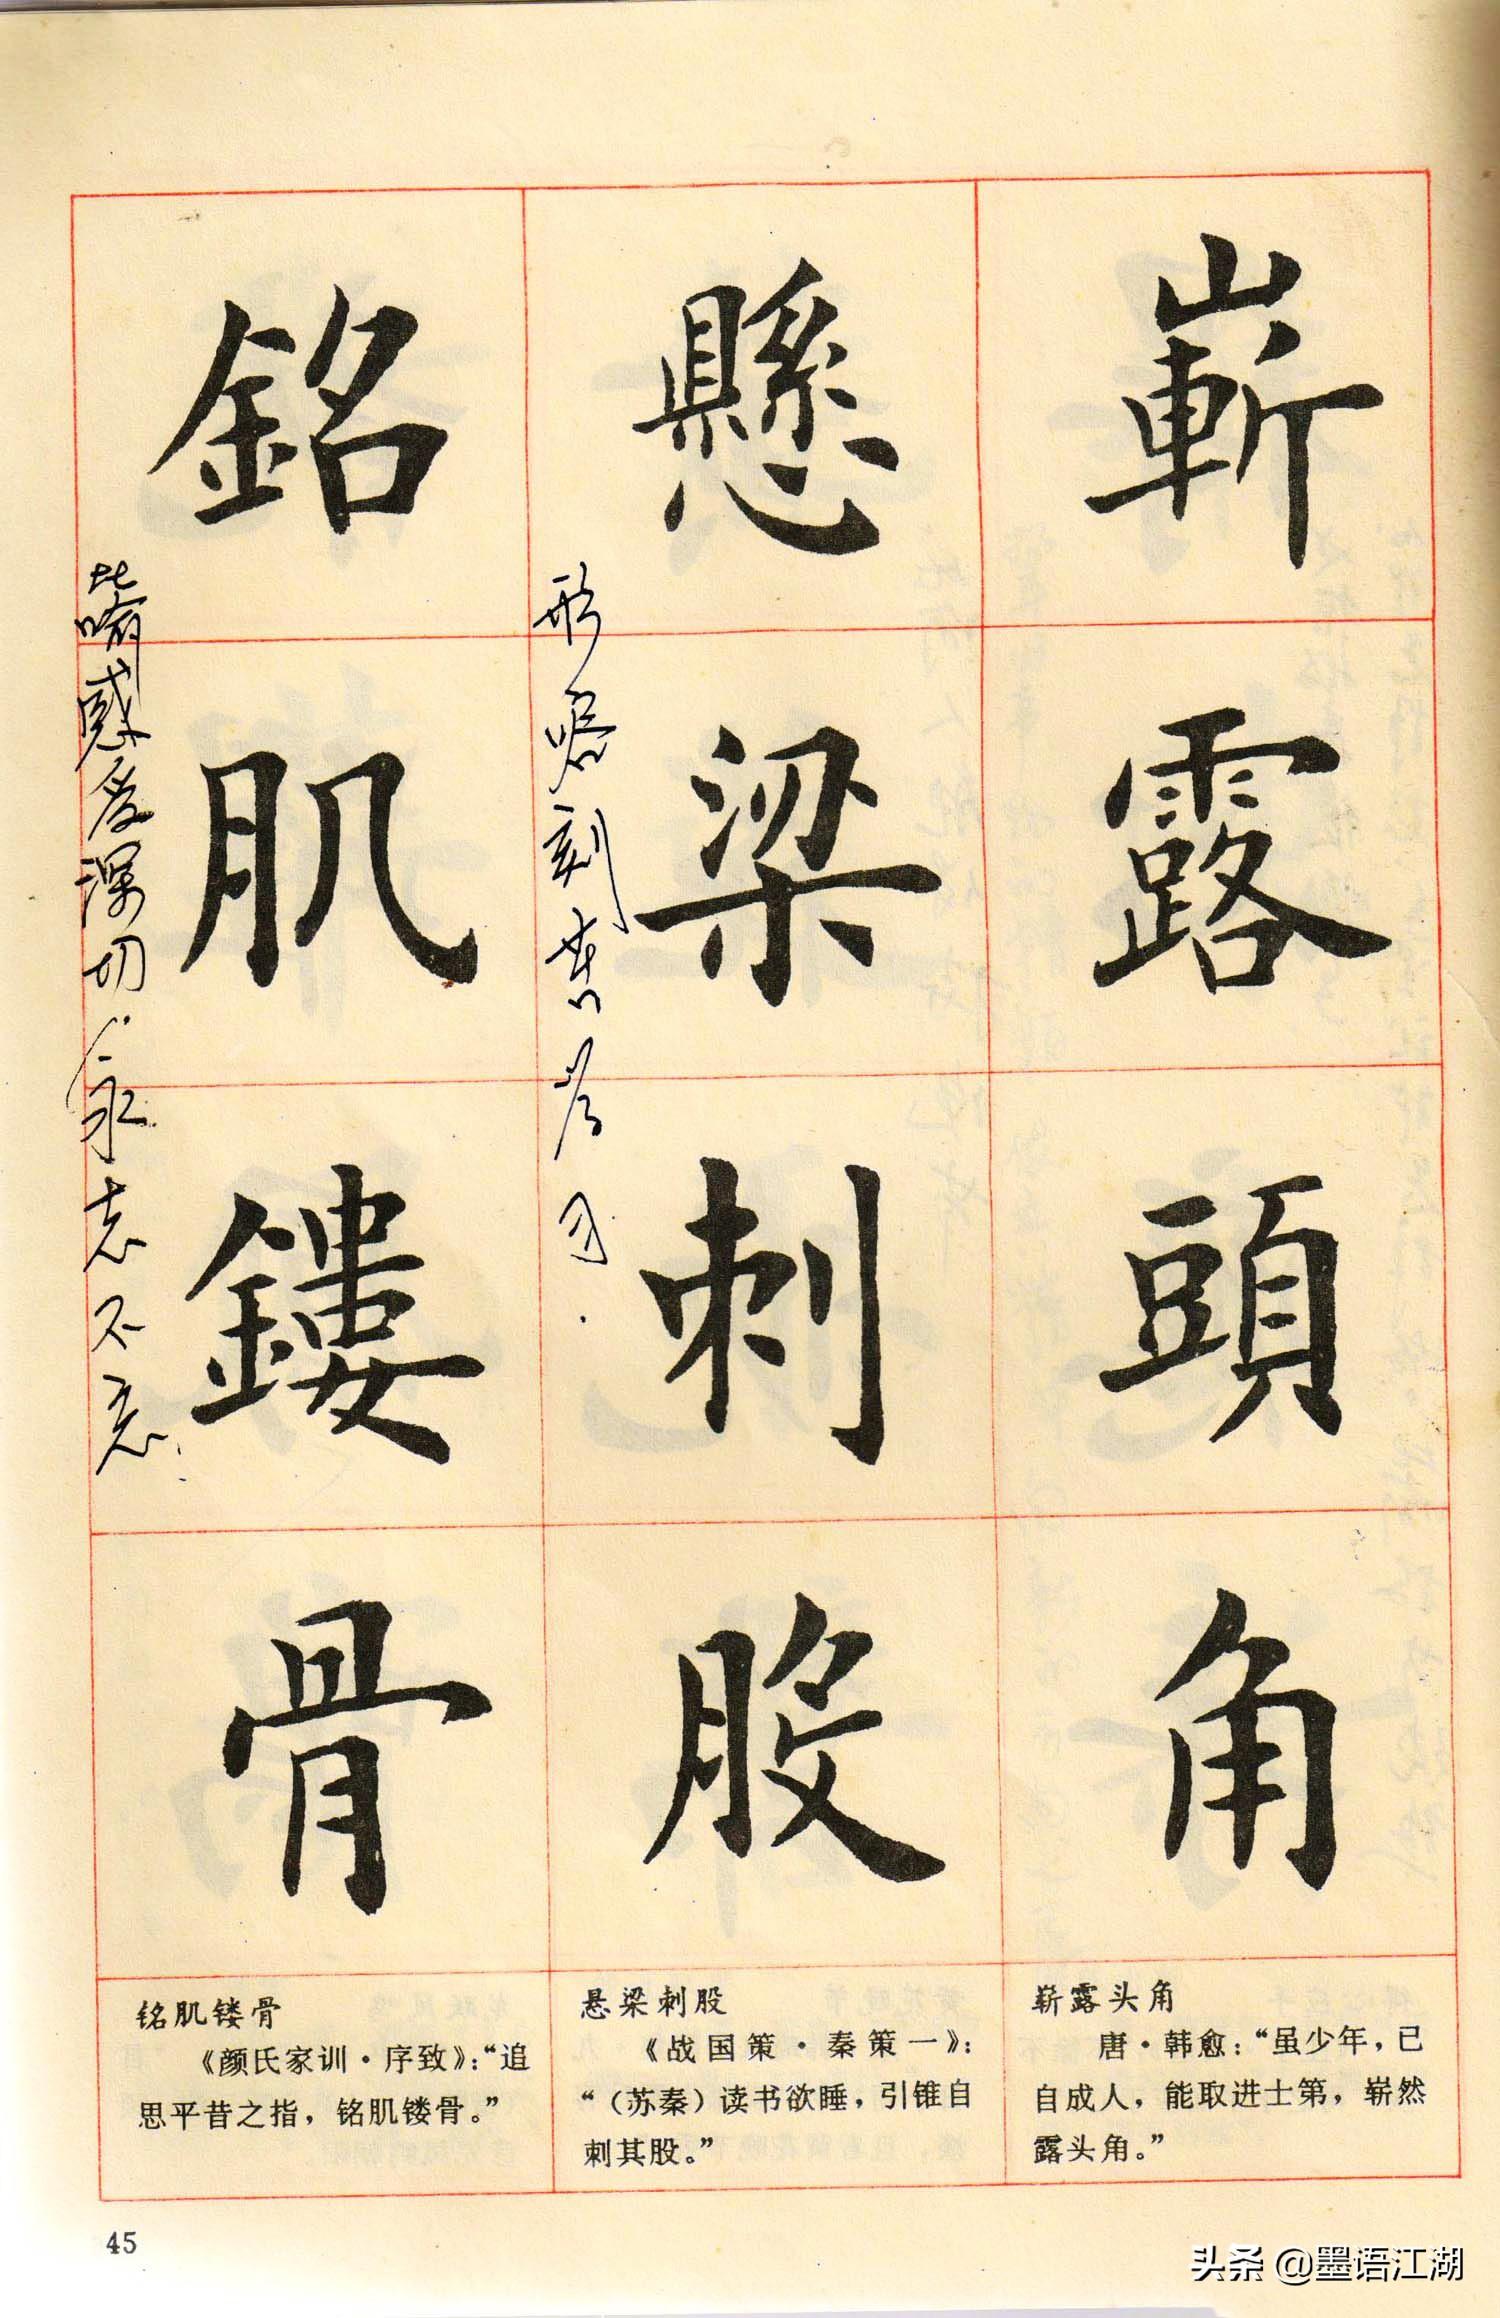 嶄露頭角
懸梁刺股
形容刻苦学习.
銘肌鏤骨
比喻感受深切,永志不忘.
崭露头角
唐·韩愈:“虽少年,已
自成人,能取进士第,崭然
露头角。”
悬梁刺股
《战国策·秦策一》:
“(苏秦)读书欲睡,引锥自
刺其股。”
铭肌镂骨
《颜氏家训·序致》:“追
思平昔之指,铭肌镂骨。”
45
头条 @墨语江湖